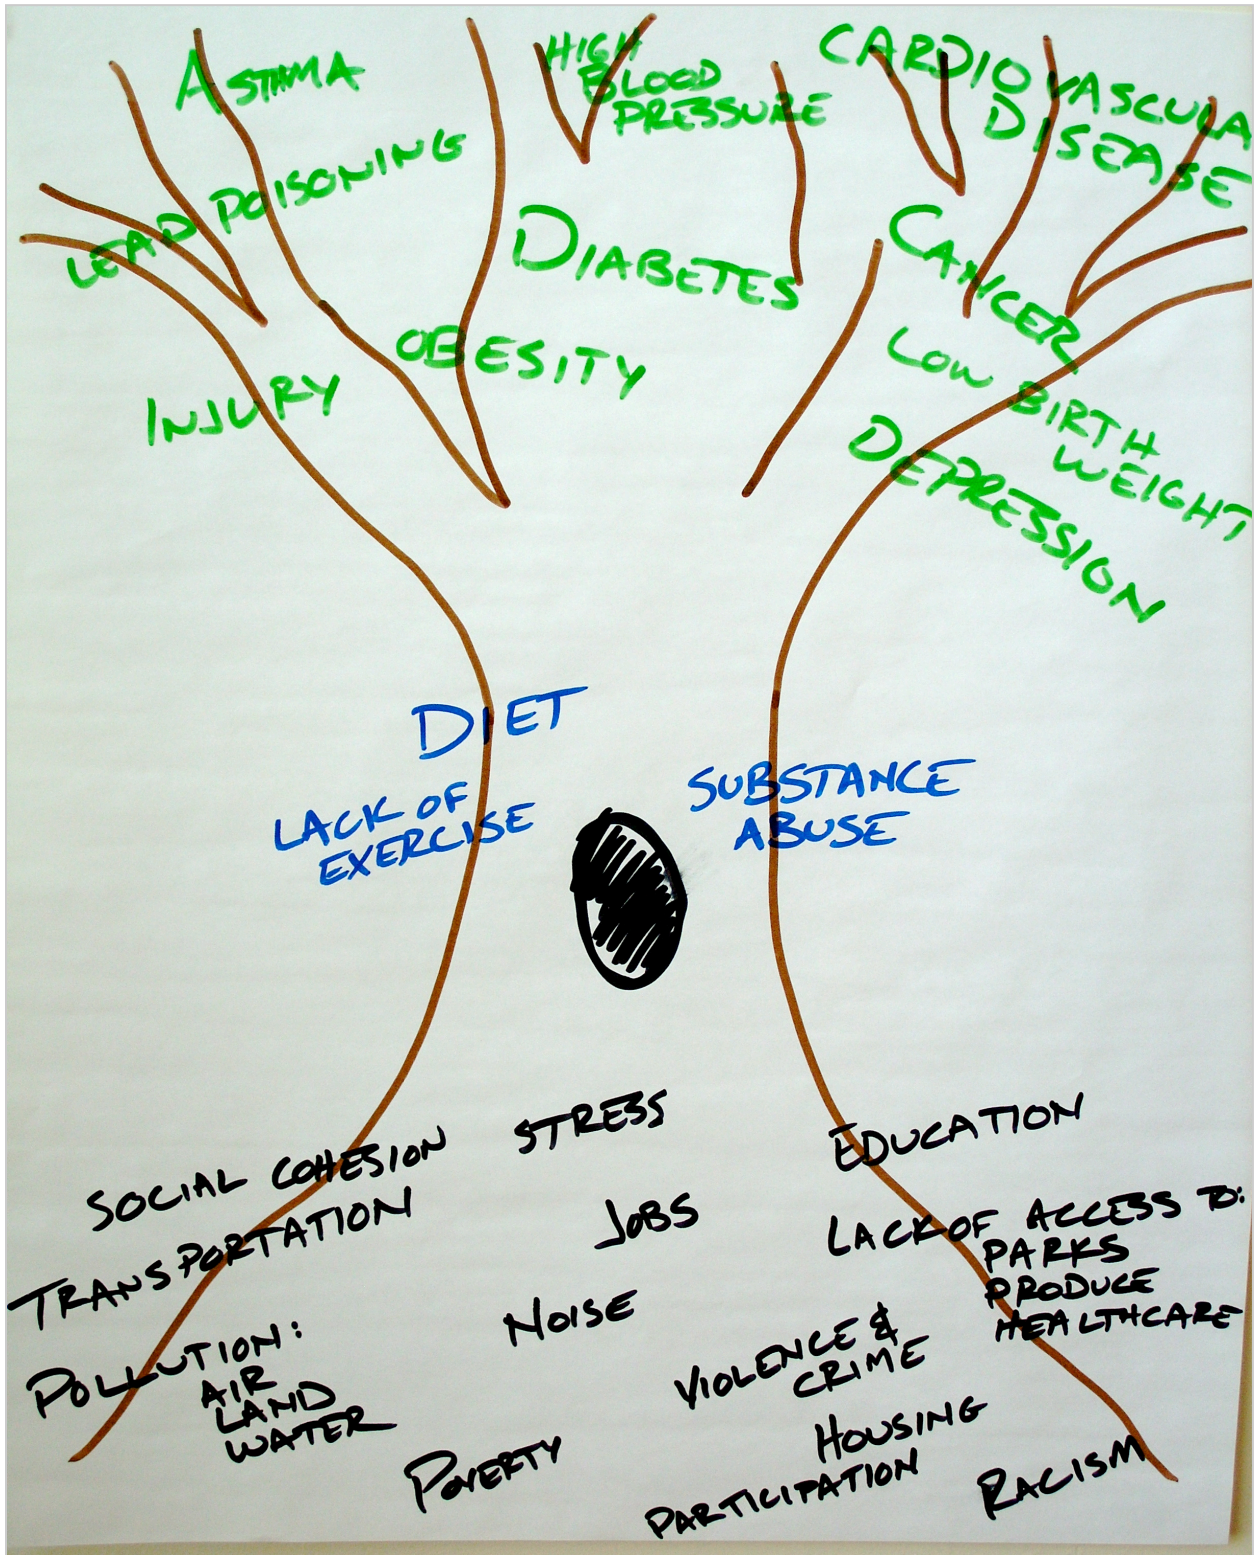 ASTHMA
HIGH
BLOOD
PRESSURE
CARDIOVASCULA
DISEASE
LEAD POISONING
DIABETES
CANCER
OBESITY
LOW BIRTH
WEIGHT
INJURY
DEPRESSION
DIET
LACK OF
EXERCISE
SUBSTANCE
ABUSE
STRESS
EDUCATION
SOCIAL COHESION
TRANSPORTATION
JOBS
LACK OF ACCESS TO:
PARKS
PRODUCE
HEALTHCARE
NOISE
POLLUTION:
AIR
LAND
WATER
VIOLENCE &
CRIME
HOUSING
POVERTY
PARTICIPATION
RACISM